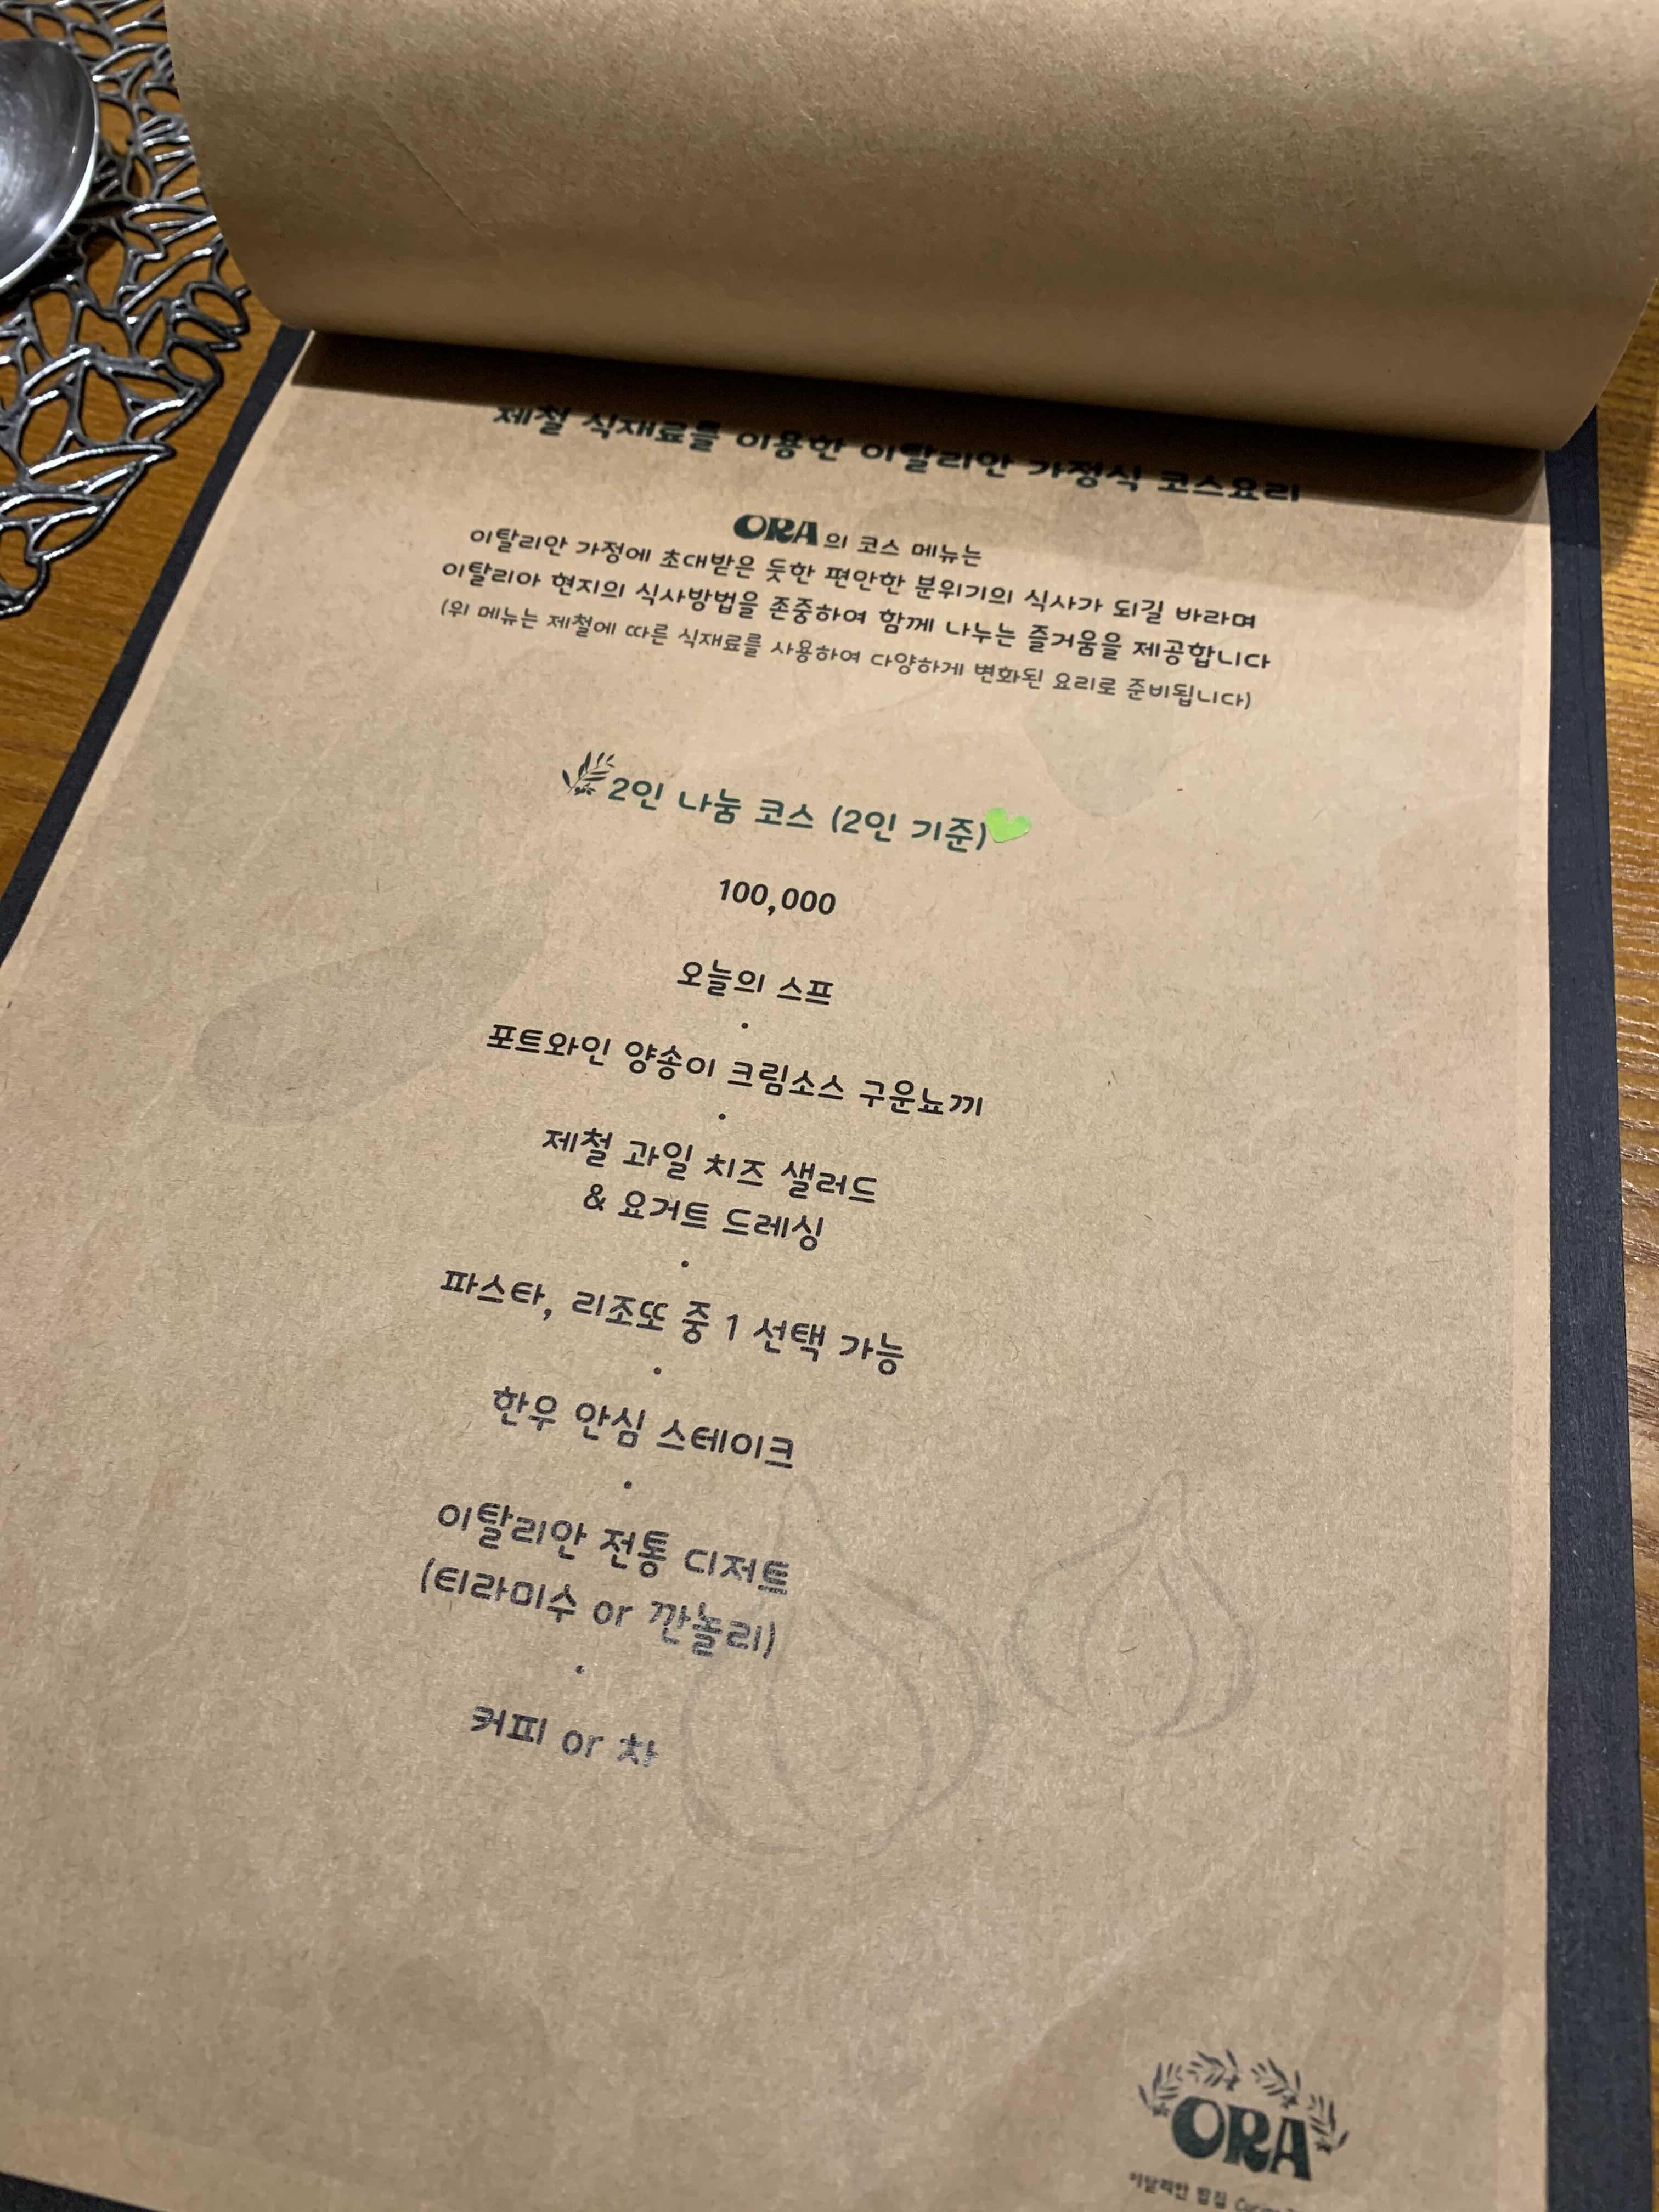 제철 식재료를 이용한 이탈리안 가정식 코스요리
ORA의 코스 메뉴는
이탈리안 가정에 초대받은 듯한 편안한 분위기의 식사가 되길 바라며
이탈리아 현지의 식사방법을 존중하여 함께 나누는 즐거움을 제공합니다
(위 메뉴는 제철에 따른 식재료를 사용하여 다양하게 변화된 요리로 준비됩니다)
2인 나눔 코스 (2인 기준)
100,000
오늘의 스프
·
포트와인 양송이 크림소스 구운뇨끼
·
제철 과일 치즈 샐러드
& 요거트 드레싱
·
파스타, 리조또 중 1 선택 가능
·
한우 안심 스테이크
·
이탈리안 전통 디저트
(티라미수 or 깐놀리)
·
커피 or 차
ORA
이탈리안 밥집